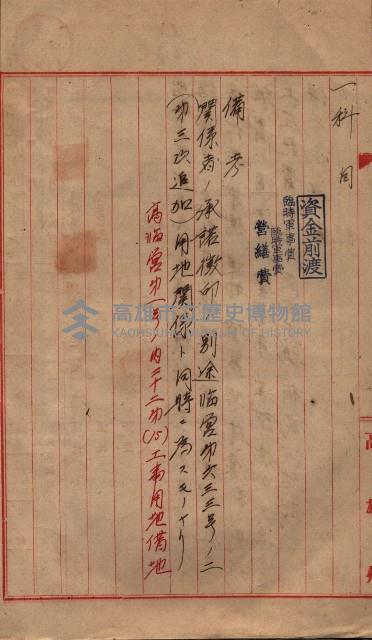 一科目
資金前渡
臨時軍事費
臨時軍事費
營繕費
備考
關係者ノ承諾徴印ハ別途臨營第六三三号ノ二
(第三次追加)用地關係ト同時ニ為スモノナリ
高臨營第一号ノ内三十二第(15)工事用地借地
高雄市立歷史博物館
KAOHSIUNG MUSEUM OF HISTORY
高雄州